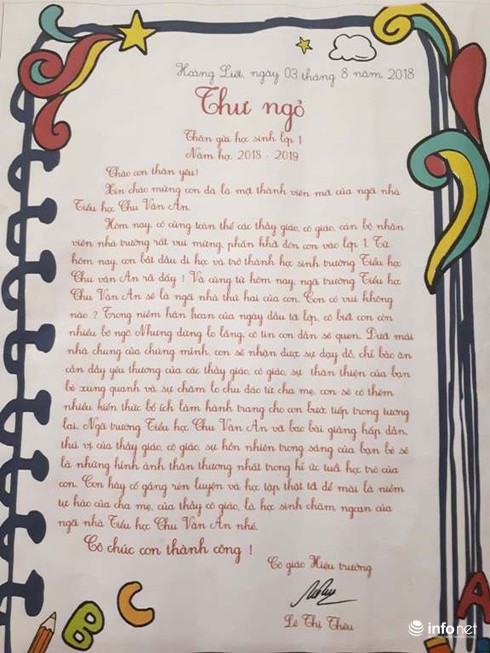 Hoàng Liệt, ngày 03 tháng 8 năm 2018
Thư ngỏ
Thân gửi học sinh lớp 1
Năm học 2018 - 2019
Chào con thân yêu!
Xin chào mừng con đã là một thành viên mới của ngôi nhà
Tiểu học Chu Văn An.
Hôm nay, cô cùng toàn thể các thầy giáo, cô giáo, cán bộ nhân
viên nhà trường rất vui mừng, phấn khởi đón con vào lớp 1. Từ
hôm nay, con bắt đầu đi học và trở thành học sinh trường Tiểu học
Chu Văn An rồi đấy! Và cũng từ hôm nay, ngôi trường Tiểu học
Chu Văn An sẽ là ngôi nhà thứ hai của con. Con có vui không
nào? Trong niềm hân hoan của ngày đầu tới lớp, cô biết con còn
nhiều bỡ ngỡ. Nhưng đừng lo lắng, cô tin con dần sẽ quen. Dưới mái
nhà chung của chúng mình, con sẽ nhận được sự dạy dỗ, chỉ bảo ân
cần đầy yêu thương của các thầy giáo, cô giáo, sự thân thiện của bạn
bè xung quanh và sự chăm lo chu đáo từ cha mẹ, con sẽ có thêm
nhiều kiến thức bổ ích làm hành trang cho con bước tiếp trong tương
lai. Ngôi trường Tiểu học Chu Văn An với bao bài giảng hấp dẫn,
thú vị của thầy giáo, cô giáo, sự hồn nhiên trong sáng của bạn bè sẽ
là những hình ảnh thân thương nhất trong kí ức tuổi học trò của
con. Con hãy cố gắng rèn luyện và học tập thật tốt để mãi là niềm
tự hào của cha mẹ, của thầy cô giáo, là học sinh chăm ngoan của
ngôi nhà Tiểu học Chu Văn An nhé.
Cô chúc con thành công!
Cô giáo Hiệu trưởng
Lê Thị Thêu
B C
A
infonet